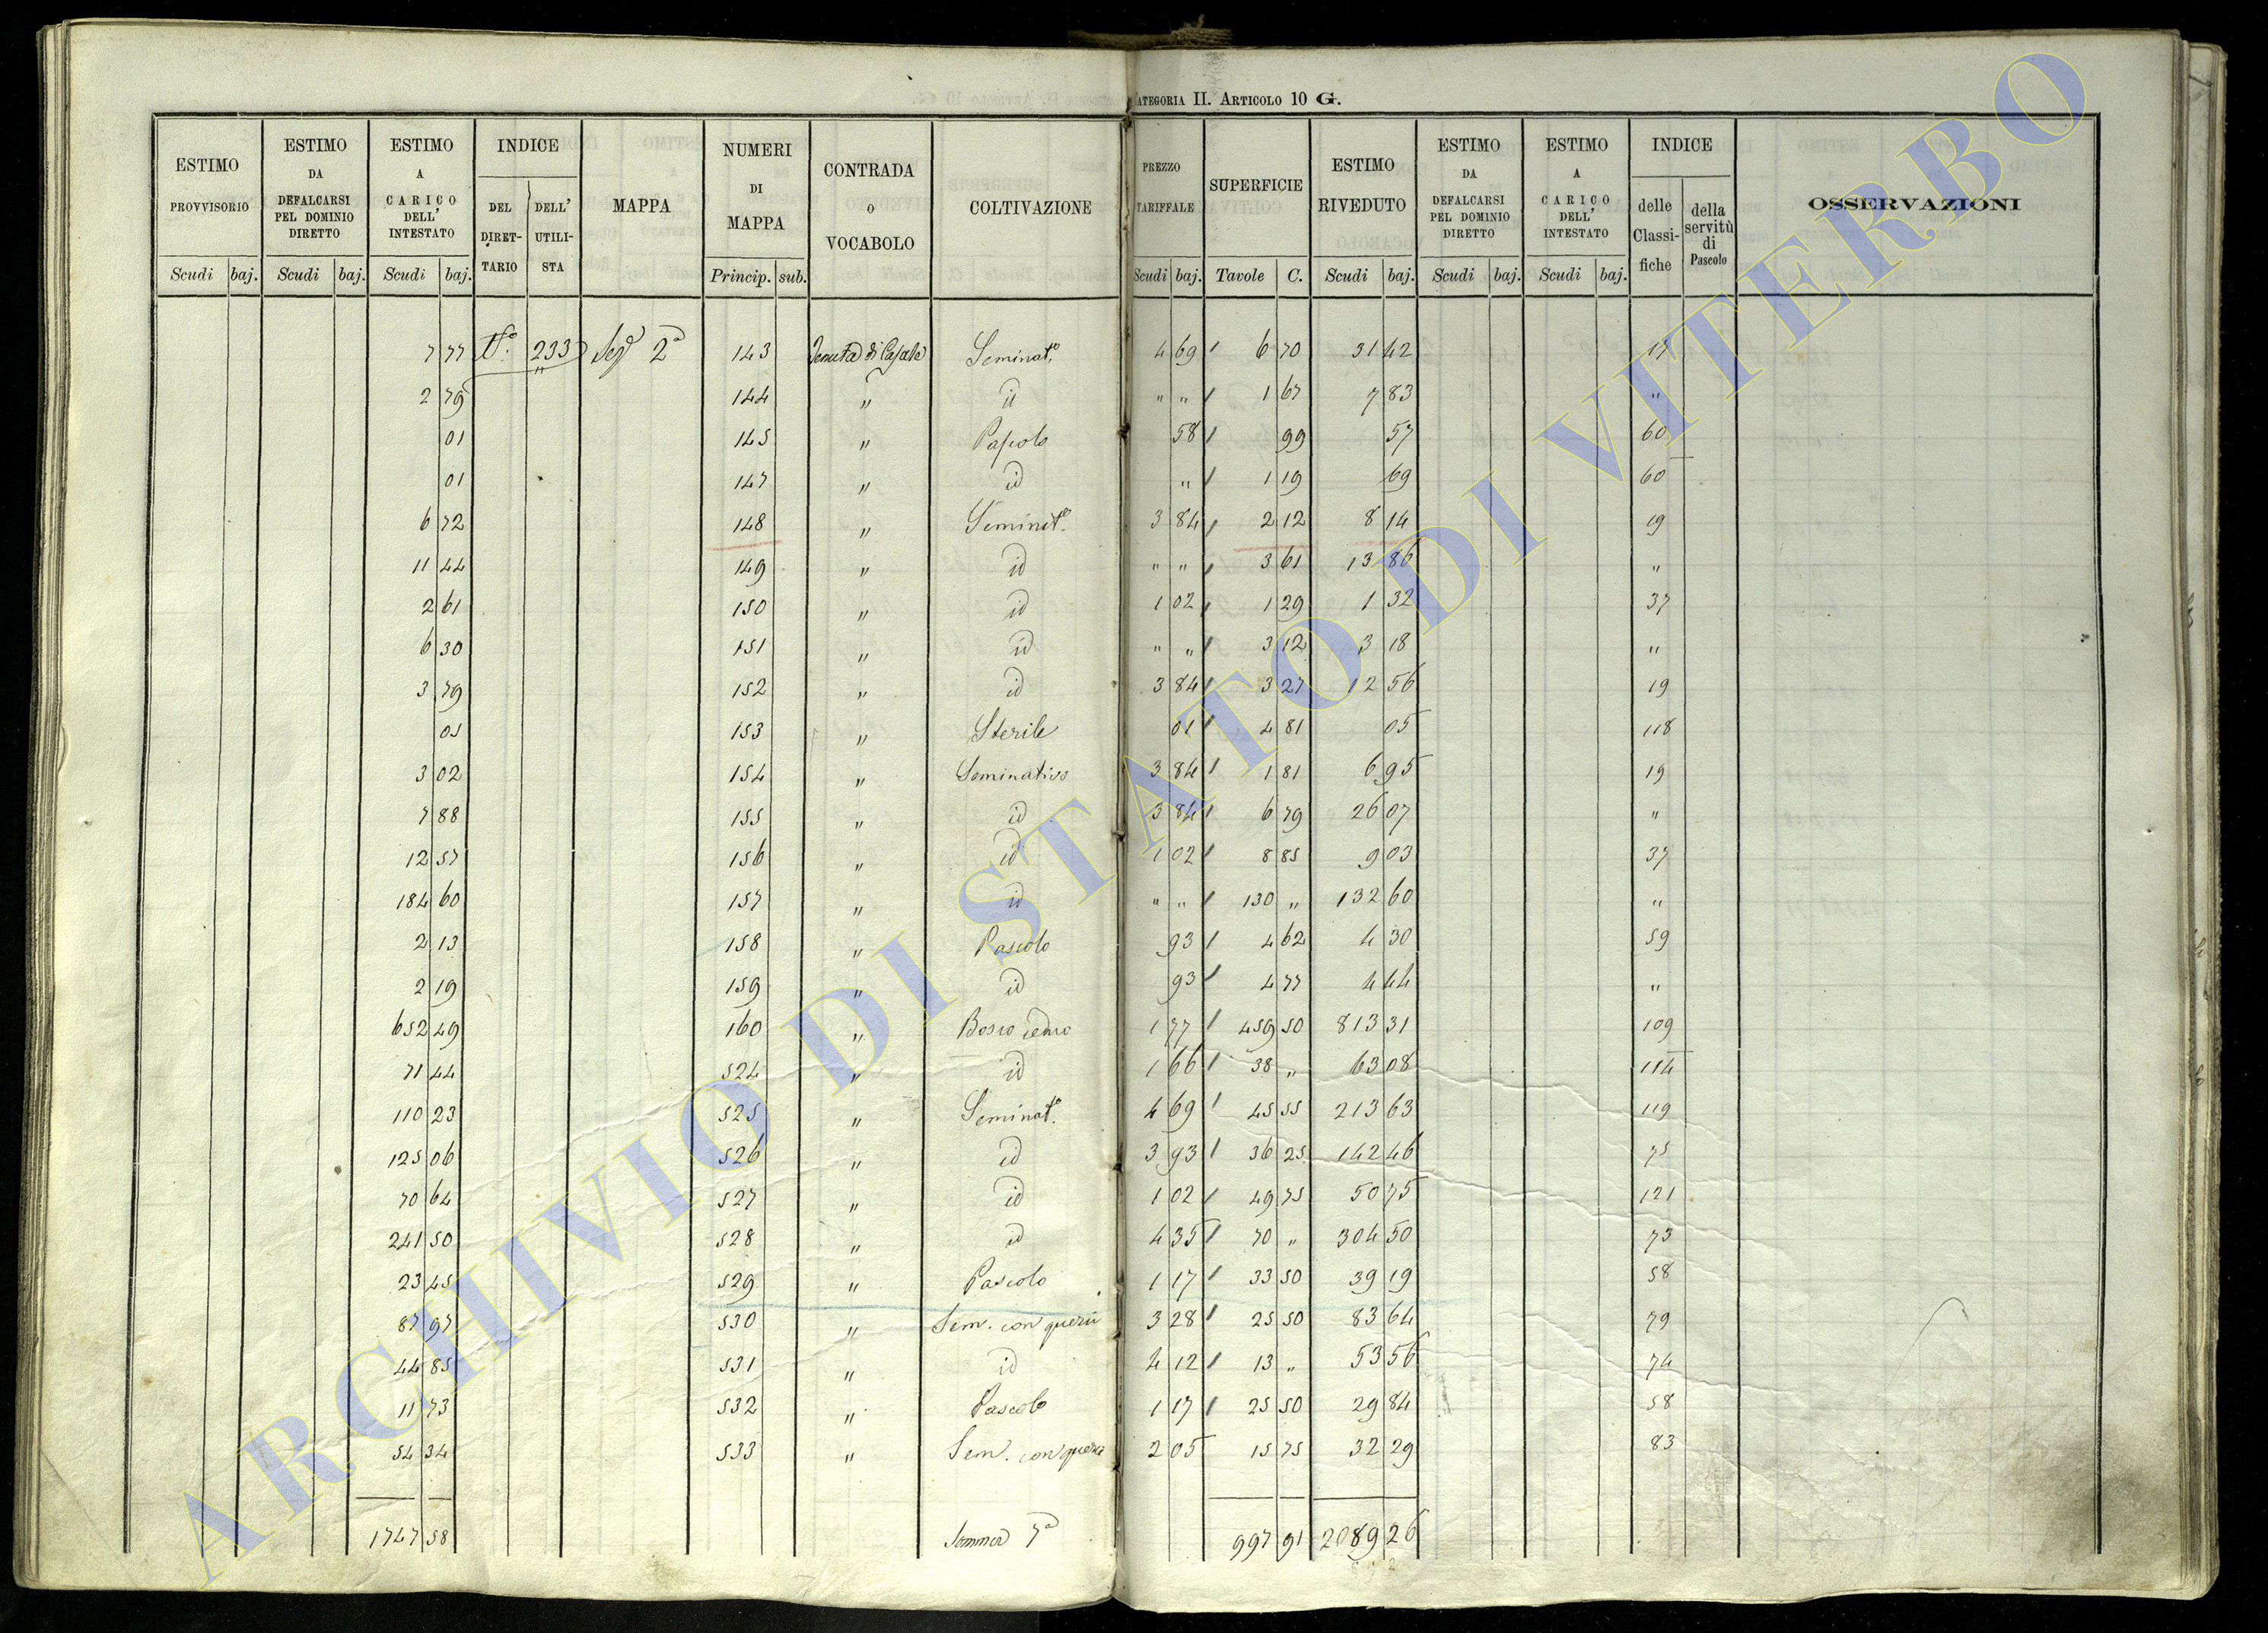 CATEGORIA II. ARTICOLO 10 G.
ESTIMO PROVVISORIO Scudi baj.
ESTIMO DA DEFALCARSI PEL DOMINIO DIRETTO Scudi baj.
ESTIMO A CARICO DELL' INTESTATO Scudi baj.
INDICE DEL DIRETTARIO DELL' UTILISTA
MAPPA
NUMERI DI MAPPA Princip. sub.
CONTRADA O VOCABOLO
COLTIVAZIONE
PREZZO TARIFFALE Scudi baj.
SUPERFICIE Tavole C.
ESTIMO RIVEDUTO Scudi baj.
ESTIMO DA DEFALCARSI PEL DOMINIO DIRETTO Scudi baj.
ESTIMO A CARICO DELL' INTESTATO Scudi baj.
INDICE delle Classifiche della servitù di Pascolo
OSSERVAZIONI
7 77 233 Seg 2ª 143 Tenuta di Casale Seminat.º 4 69 6 70 31 42 17
2 79 144 " id " " 1 67 7 83 "
01 145 " Pascolo 58 99 57 60
01 147 " id " 1 19 69 60
6 72 148 " Seminat.º 3 84 2 12 8 14 19
11 44 149 " id " " 3 61 13 86 "
2 61 150 " id 1 02 1 29 1 32 37
6 30 151 " id " " 3 12 3 18 "
3 79 152 " id 3 84 3 27 12 56 19
05 153 " Sterile 01 4 81 05 118
3 02 154 " Seminativo 3 84 1 81 6 95 19
7 88 155 " id 3 84 6 79 26 07 "
12 57 156 " id 1 02 8 85 9 03 37
184 60 157 " id " " 130 " 132 60 "
2 13 158 " Pascolo 93 4 62 4 30 59
2 19 159 " id 93 4 77 4 44 "
652 49 160 " Bosco ceduo 1 77 459 50 813 31 109
71 44 524 " id 1 66 38 " 63 08 114
110 23 525 " Seminat.º 4 69 45 55 213 63 119
125 06 526 " id 3 93 36 25 142 46 75
70 64 527 " id 1 02 49 75 50 75 121
241 50 528 " id 4 35 70 " 304 50 73
23 45 529 " Pascolo 1 17 33 50 39 19 58
87 97 530 " Sem. con querci 3 28 25 50 83 64 79
44 85 531 " id 4 12 13 " 53 56 74
11 73 532 " Pascolo 1 17 25 50 29 84 58
54 34 533 " Sem. con querci 2 05 15 75 32 29 83
1747 58 Somma 7ª 997 91 2089 26
ARCHIVIO DI STATO DI VITERBO